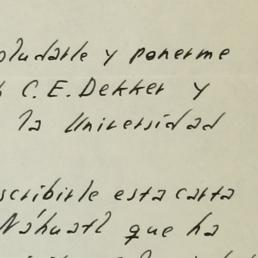 saludarle y ponerme
C. E. Dekker y
la Universidad
escribirle esta carta
Náhuatl que ha